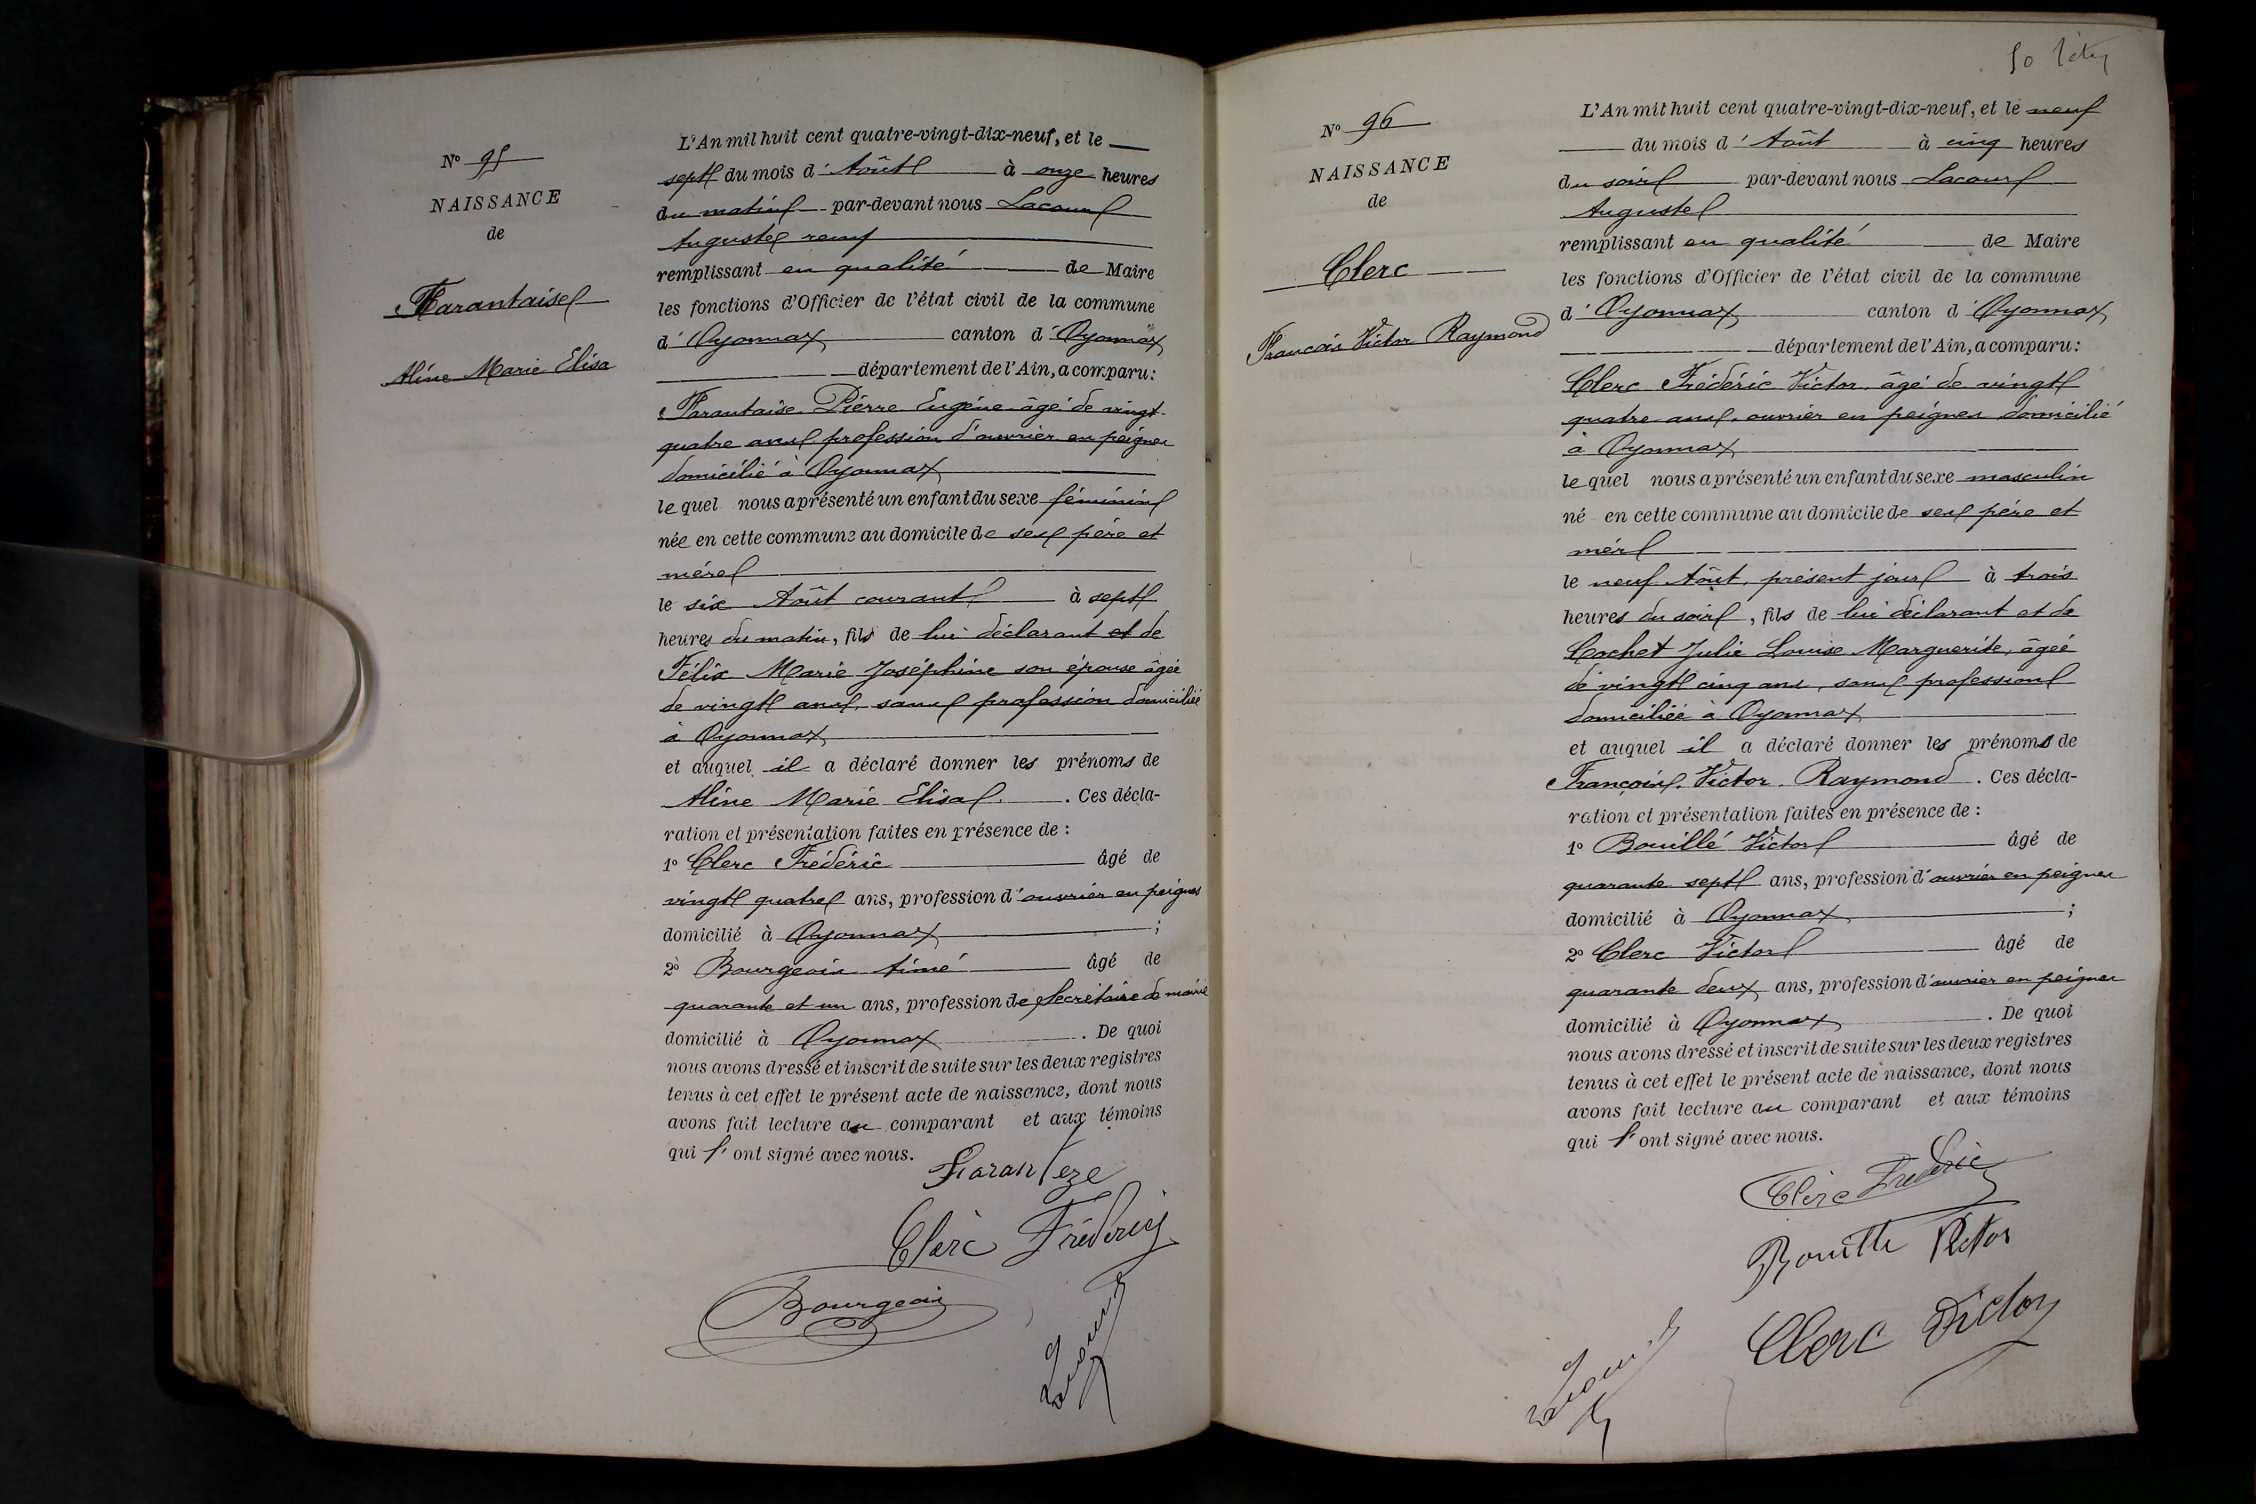 N° 95
NAISSANCE
de
Farantaise
Aline Marie Elisa
L'An mil huit cent quatre-vingt-dix-neuf, et le
sept du mois d'Août à onze heures
du matin par-devant nous Lacour
Auguste
remplissant en qualité de Maire
les fonctions d'Officier de l'état civil de la commune
d'Oyonnax canton d'Oyonnax
département de l'Ain, a comparu:
Farantaise Pierre Eugène âgé de vingt-
quatre ans profession d'ouvrier en peignes
domicilié à Oyonnax
le quel nous a présenté un enfant du sexe féminin
née en cette commune au domicile de ses père et
mère
le six Août courant à sept
heures du matin, fils de lui déclarant et de
Félix Marie Joséphine son épouse âgée
de vingt ans, sans profession domiciliée
à Oyonnax
et auquel il a déclaré donner les prénoms de
Aline Marie Elisa. Ces décla-
ration et présentation faites en présence de :
1° Clerc Frédéric âgé de
vingt quatre ans, profession d'ouvrier en peignes
domicilié à Oyonnax ;
2° Bourgeois Aimé âgé de
quarante et un ans, profession de Secrétaire de mairie
domicilié à Oyonnax . De quoi
nous avons dressé et inscrit de suite sur les deux registres
tenus à cet effet le présent acte de naissance, dont nous
avons fait lecture au comparant et aux témoins
qui l'ont signé avec nous.
Faranteze
Clerc Fréderic
Bourgeois
Lacour
50
N° 96
NAISSANCE
de
Clerc
François Victor Raymond
L'An mil huit cent quatre-vingt-dix-neuf, et le neuf
du mois d'Août à cinq heures
du soir par-devant nous Lacour
Auguste
remplissant en qualité de Maire
les fonctions d'Officier de l'état civil de la commune
d'Oyonnax canton d'Oyonnax
département de l'Ain, a comparu:
Clerc Frédéric Victor, âgé de vingt
quatre ans, ouvrier en peignes domicilié
à Oyonnax
le quel nous a présenté un enfant du sexe masculin
né en cette commune au domicile de ses père et
mère
le neuf Août, présent jour à trois
heures du soir, fils de lui déclarant et de
Cochet Julie Louise Marguerite, âgée
de vingt cinq ans, sans profession
domiciliée à Oyonnax
et auquel il a déclaré donner les prénoms de
François, Victor, Raymond . Ces décla-
ration et présentation faites en présence de :
1° Bouillé Victor âgé de
quarante sept ans, profession d'ouvrier en peignes
domicilié à Oyonnax ;
2° Clerc Victor âgé de
quarante deux ans, profession d'ouvrier en peignes
domicilié à Oyonnax . De quoi
nous avons dressé et inscrit de suite sur les deux registres
tenus à cet effet le présent acte de naissance, dont nous
avons fait lecture au comparant et aux témoins
qui l'ont signé avec nous.
Clerc Frederic
Bouille Victor
Clerc Victor
Lacour